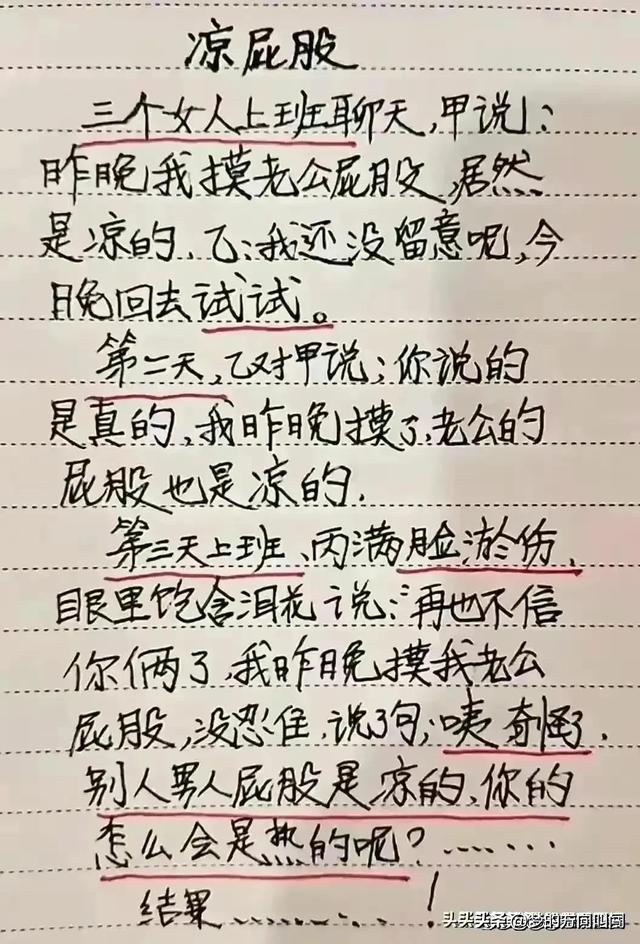 凉屁股
三个女人上班聊天,甲说:
昨晚我摸老公屁股,居然
是凉的,乙:我还没留意呢,今
晚回去试试。
第二天,乙对甲说;你说的
是真的,我昨晚摸了,老公的
屁股也是凉的.
第三天上班、丙满脸淤伤,
眼里饱含泪花说:"再也不信
你俩了,我昨晚摸我老公
屁股,没忍住,说了句;咦奇怪了,
别人男人屁股是凉的,你的
怎么会是热的呢?……
结果………!